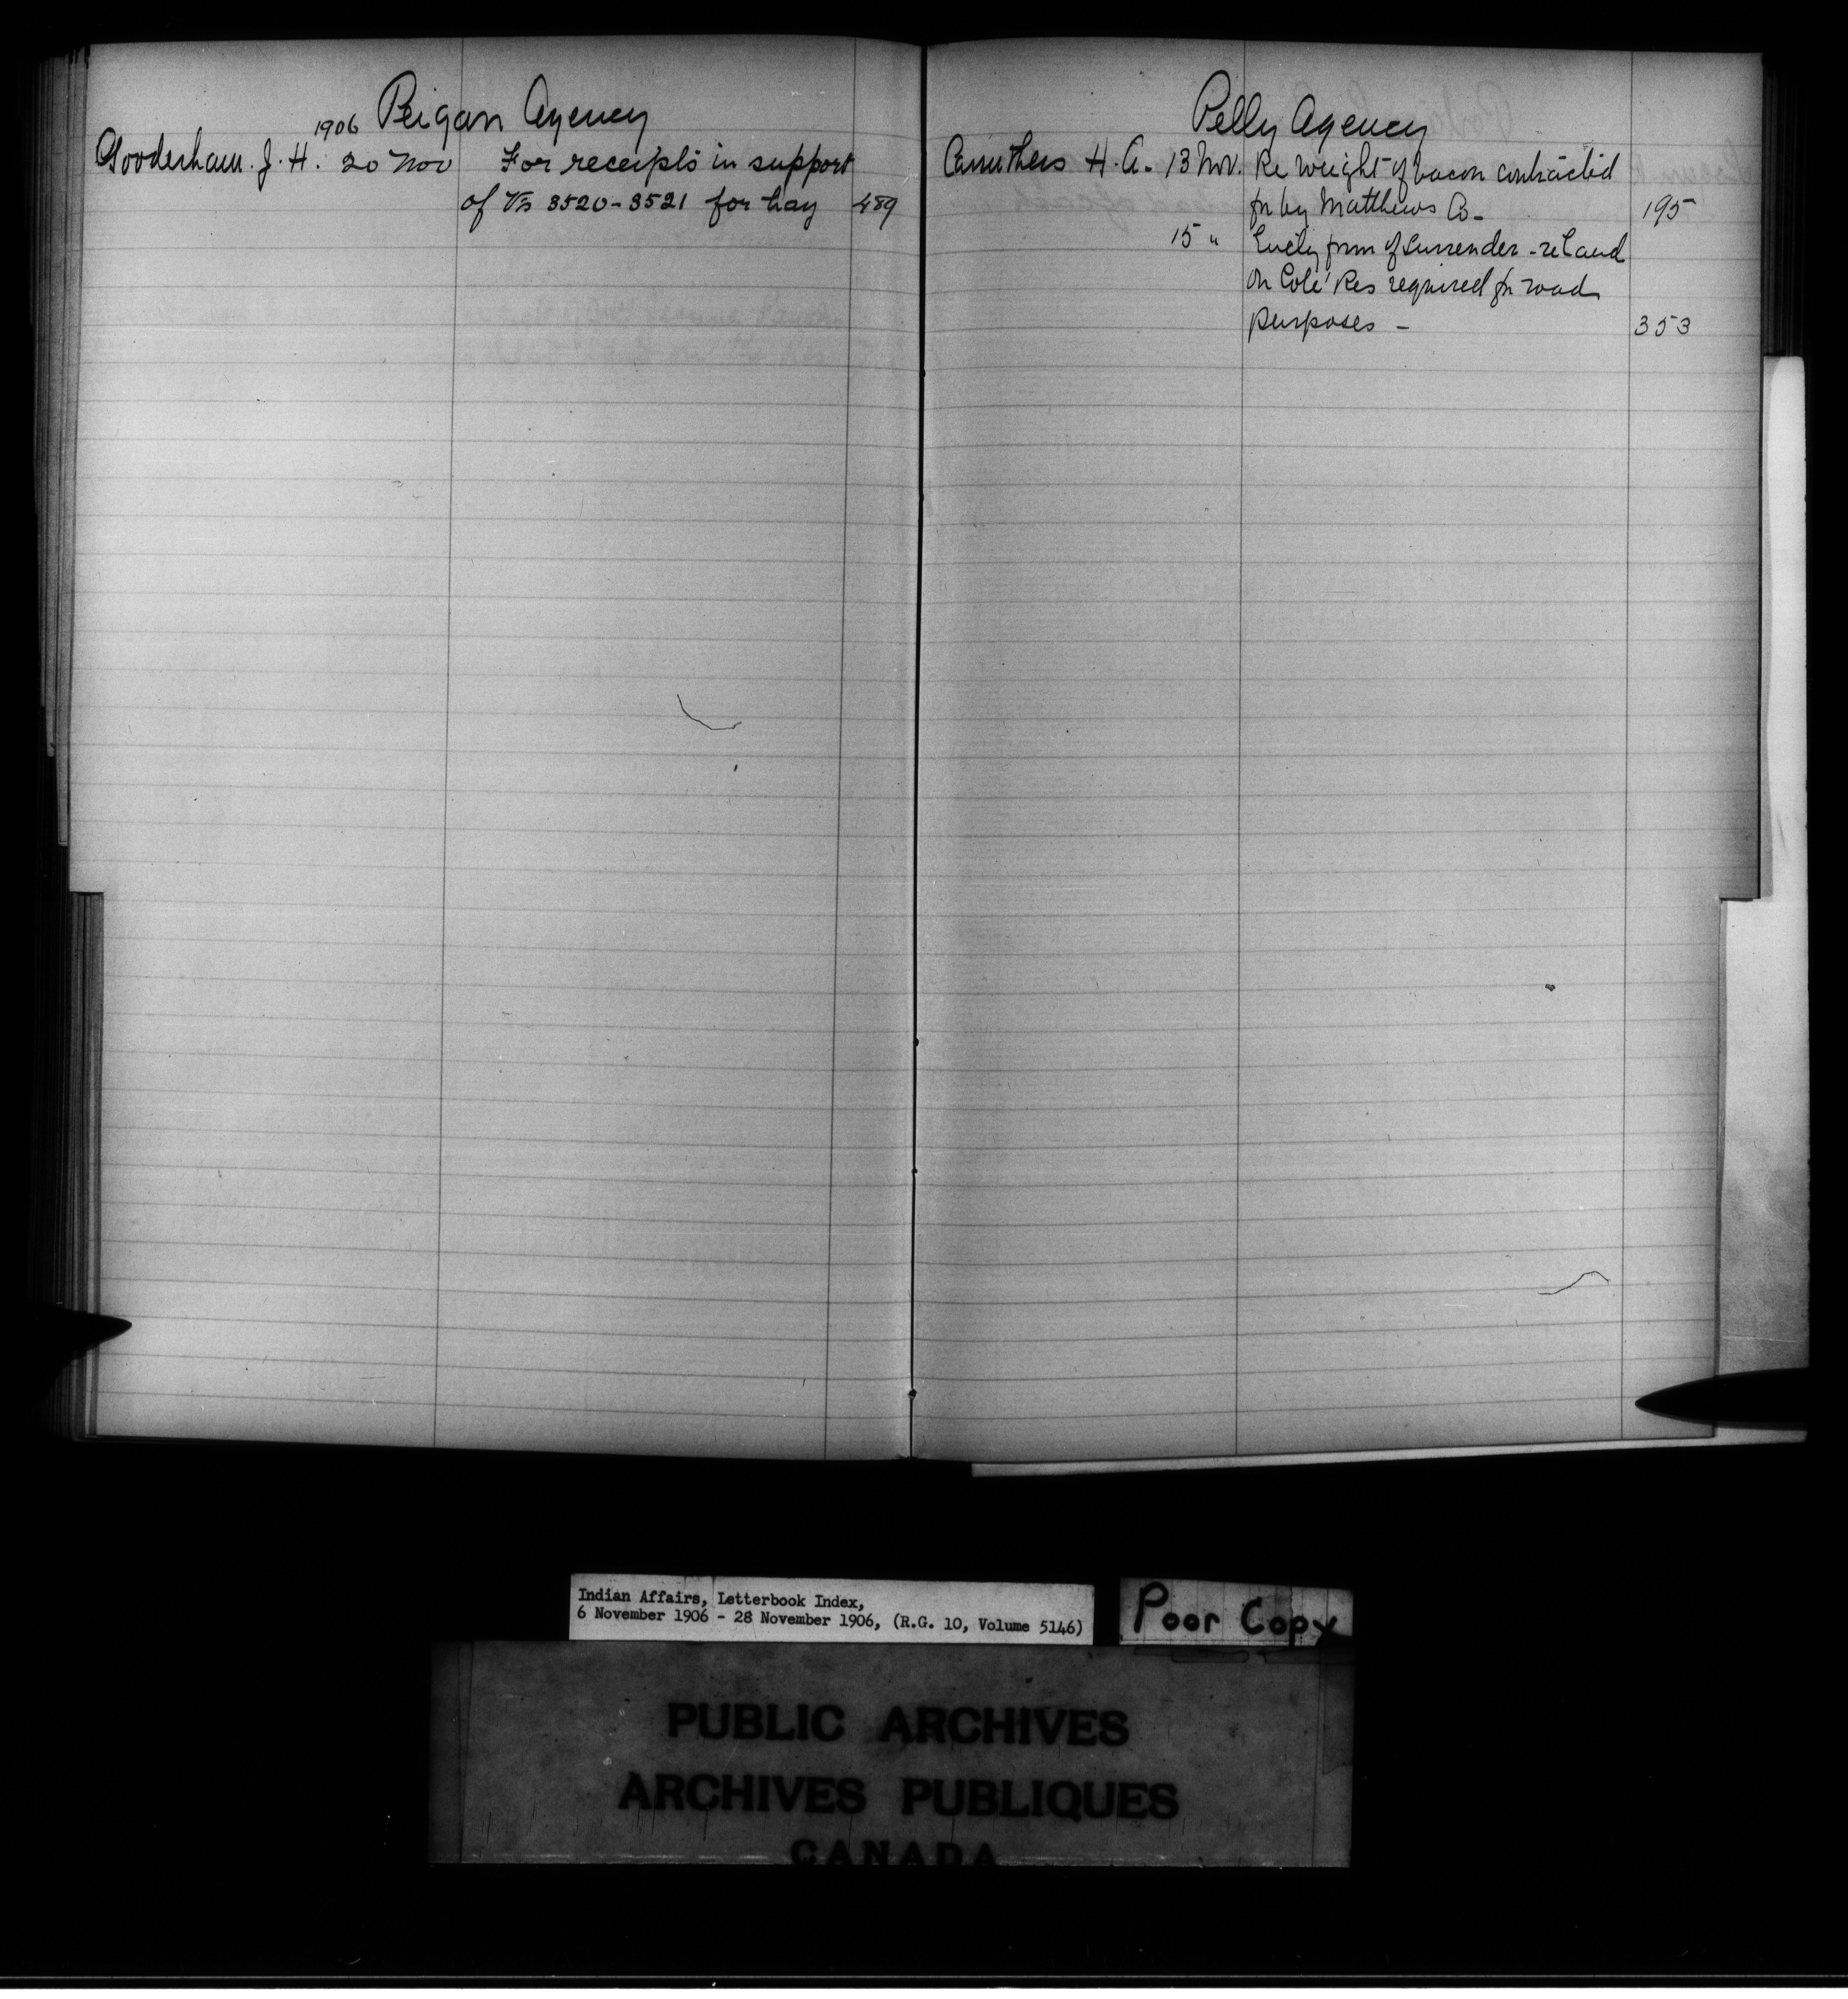 1906 Peigan Agency
Gooderham. J. H. 20 Nov For receipts in support
of Vrs 3520-3521 for hay 489
Pelly Agency
Carruthers H. A. 13 Nov. Re weight of bacon contracted
for by Matthews Co - 195
15 " form of surrender - re land
on Coté Res required for road
purposes - 353
Indian Affairs, Letterbook Index,
6 November 1906 - 28 November 1906, (R.G. 10, Volume 5146)
Poor Copy
PUBLIC ARCHIVES
ARCHIVES PUBLIQUES
CANADA